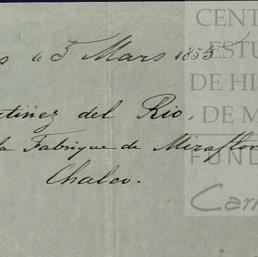 CENT
ESTU
DE HIS
DE M
FUND
Car
s le 5 Mars 1855
tinez del Rio,
la Fabrique de Miraflor
Chalco.